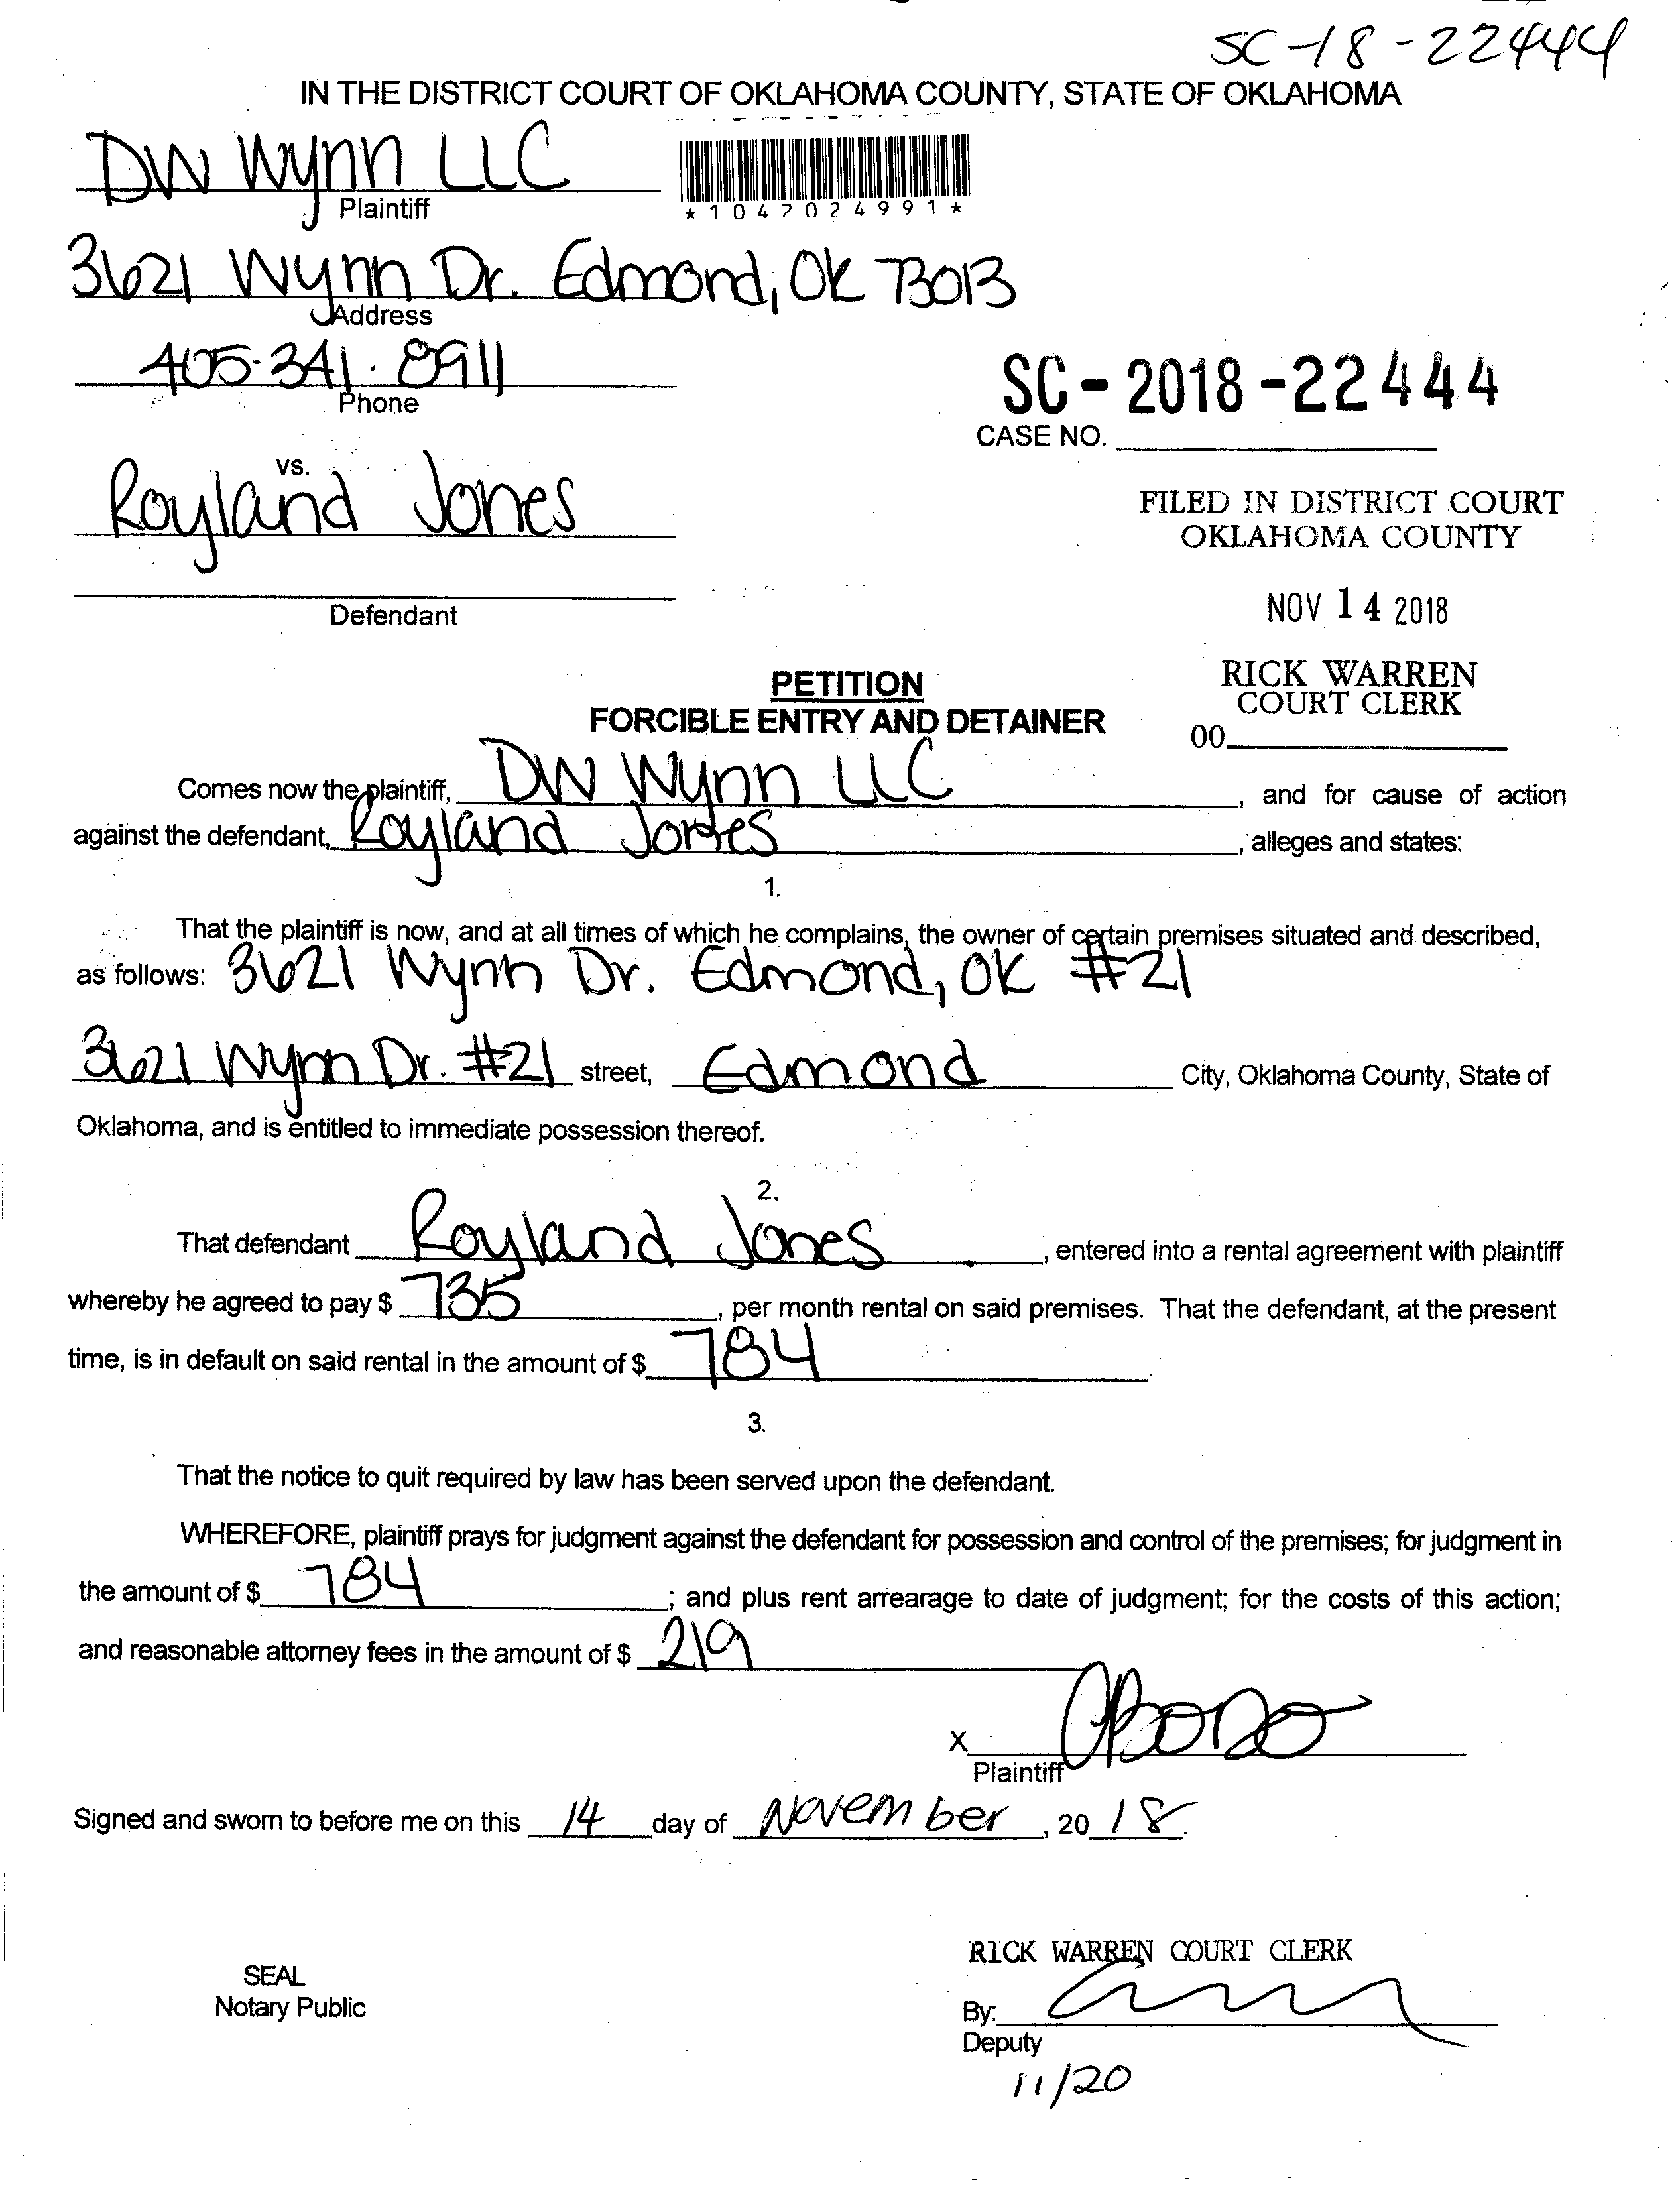 SC-18-22444
IN THE DISTRICT COURT OF OKLAHOMA COUNTY, STATE OF OKLAHOMA
DW Wynn LLC
Plaintiff
*1042024991*
3621 Wynn Dr. Edmond, OK 73013
Address
405-341-8911
Phone
SC-2018-22444
CASE NO.
vs.
Royland Jones
Defendant
FILED IN DISTRICT COURT
OKLAHOMA COUNTY
NOV 14 2018
RICK WARREN
COURT CLERK
00
PETITION
FORCIBLE ENTRY AND DETAINER
Comes now the plaintiff, DW Wynn LLC, and for cause of action
against the defendant, Royland Jones, alleges and states:
1.
That the plaintiff is now, and at all times of which he complains, the owner of certain premises situated and described,
as follows: 3621 Wynn Dr. Edmond, OK #21
3621 Wynn Dr. #21 street, Edmond City, Oklahoma County, State of
Oklahoma, and is entitled to immediate possession thereof.
2.
That defendant Royland Jones, entered into a rental agreement with plaintiff
whereby he agreed to pay $ 735, per month rental on said premises. That the defendant, at the present
time, is in default on said rental in the amount of $ 784.
3.
That the notice to quit required by law has been served upon the defendant.
WHEREFORE, plaintiff prays for judgment against the defendant for possession and control of the premises; for judgment in
the amount of $ 784; and plus rent arrearage to date of judgment; for the costs of this action;
and reasonable attorney fees in the amount of $ 219
X
Plaintiff
Signed and sworn to before me on this 14 day of November, 20 18.
RICK WARREN COURT CLERK
SEAL
Notary Public
By:
Deputy
11/20